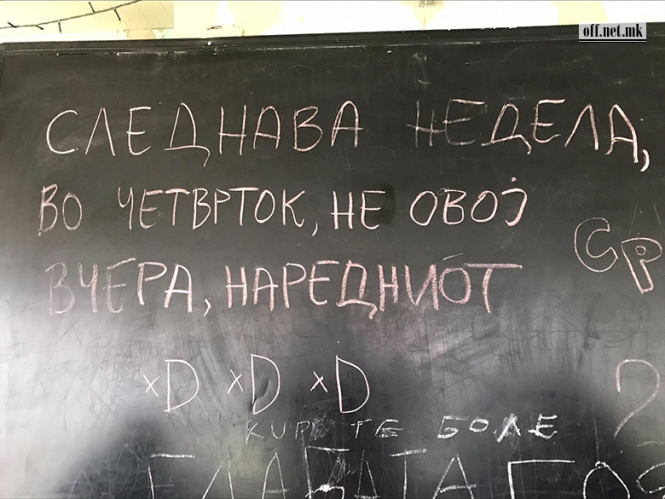 off.net.mk
СЛЕДНАВА НЕДЕЛА,
ВО ЧЕТВРТОК, НЕ ОВОЈ
СР
ВЧЕРА, НАРЕДНИОТ
xD xD xD
?
ТЕ БОЛЕ
ГЛАВАТА